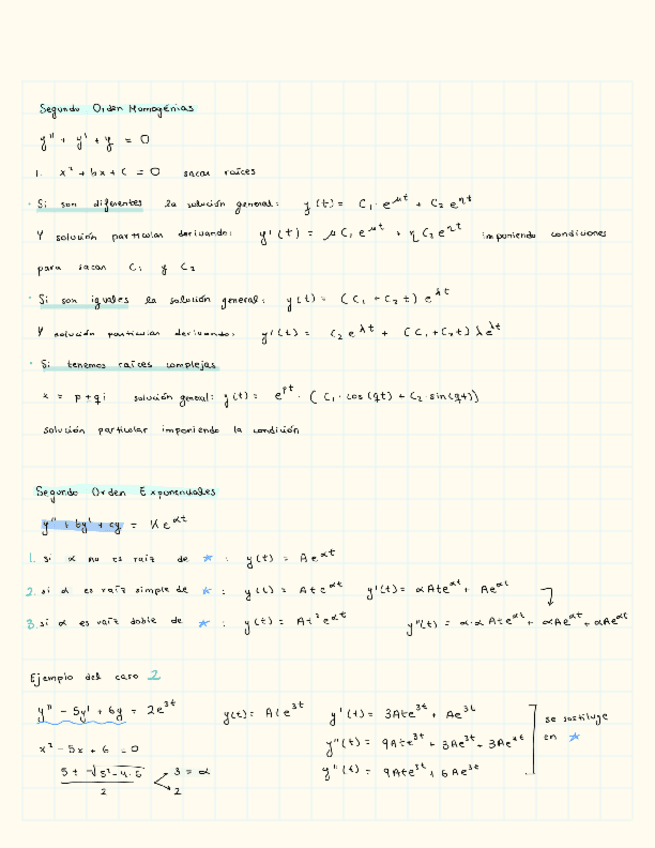 Segundo Orden Homogénias
y'' + y' + y = 0
1. x² + bx + c = 0 sacar raíces
· Si son diferentes la solución general: y(t) = C₁·e^μt + C₂ e^ηt
Y solución particular derivando: y'(t) = μC₁e^μt + ηC₂e^ηt imponiendo condiciones
para sacar C₁ y C₂
· Si son iguales la solución general: y(t) = (C₁ + C₂t) e^λt
Y solución particular derivando: y'(t) = C₂e^λt + (C₁+C₂t) λe^λt
· Si tenemos raíces complejas
x = p+qi solución general: y(t) = e^pt · (C₁·cos(qt) + C₂·sin(qt))
solución particular imponiendo la condición
Segundo Orden Exponenciales
y'' + by' + cy = Ke^αt
1. si α no es raíz de * : y(t) = Ae^αt
2. si α es raíz simple de * : y(t) = Ate^αt y'(t) = αAte^αt + Ae^αt
3. si α es raíz doble de * : y(t) = At²e^αt y''(t) = α·αAte^αt + αAe^αt + αAe^αt
Ejemplo del caso 2
y'' - 5y' + 6y = 2e^3t y(t) = Ate^3t y'(t) = 3Ate^3t + Ae^3t se sustituye
x² - 5x + 6 = 0 y''(t) = 9Ate^3t + 3Ae^3t + 3Ae^3t en *
5 ± √5²-4·6 / 2 3 = α y''(t) = 9Ate^3t + 6Ae^3t
2